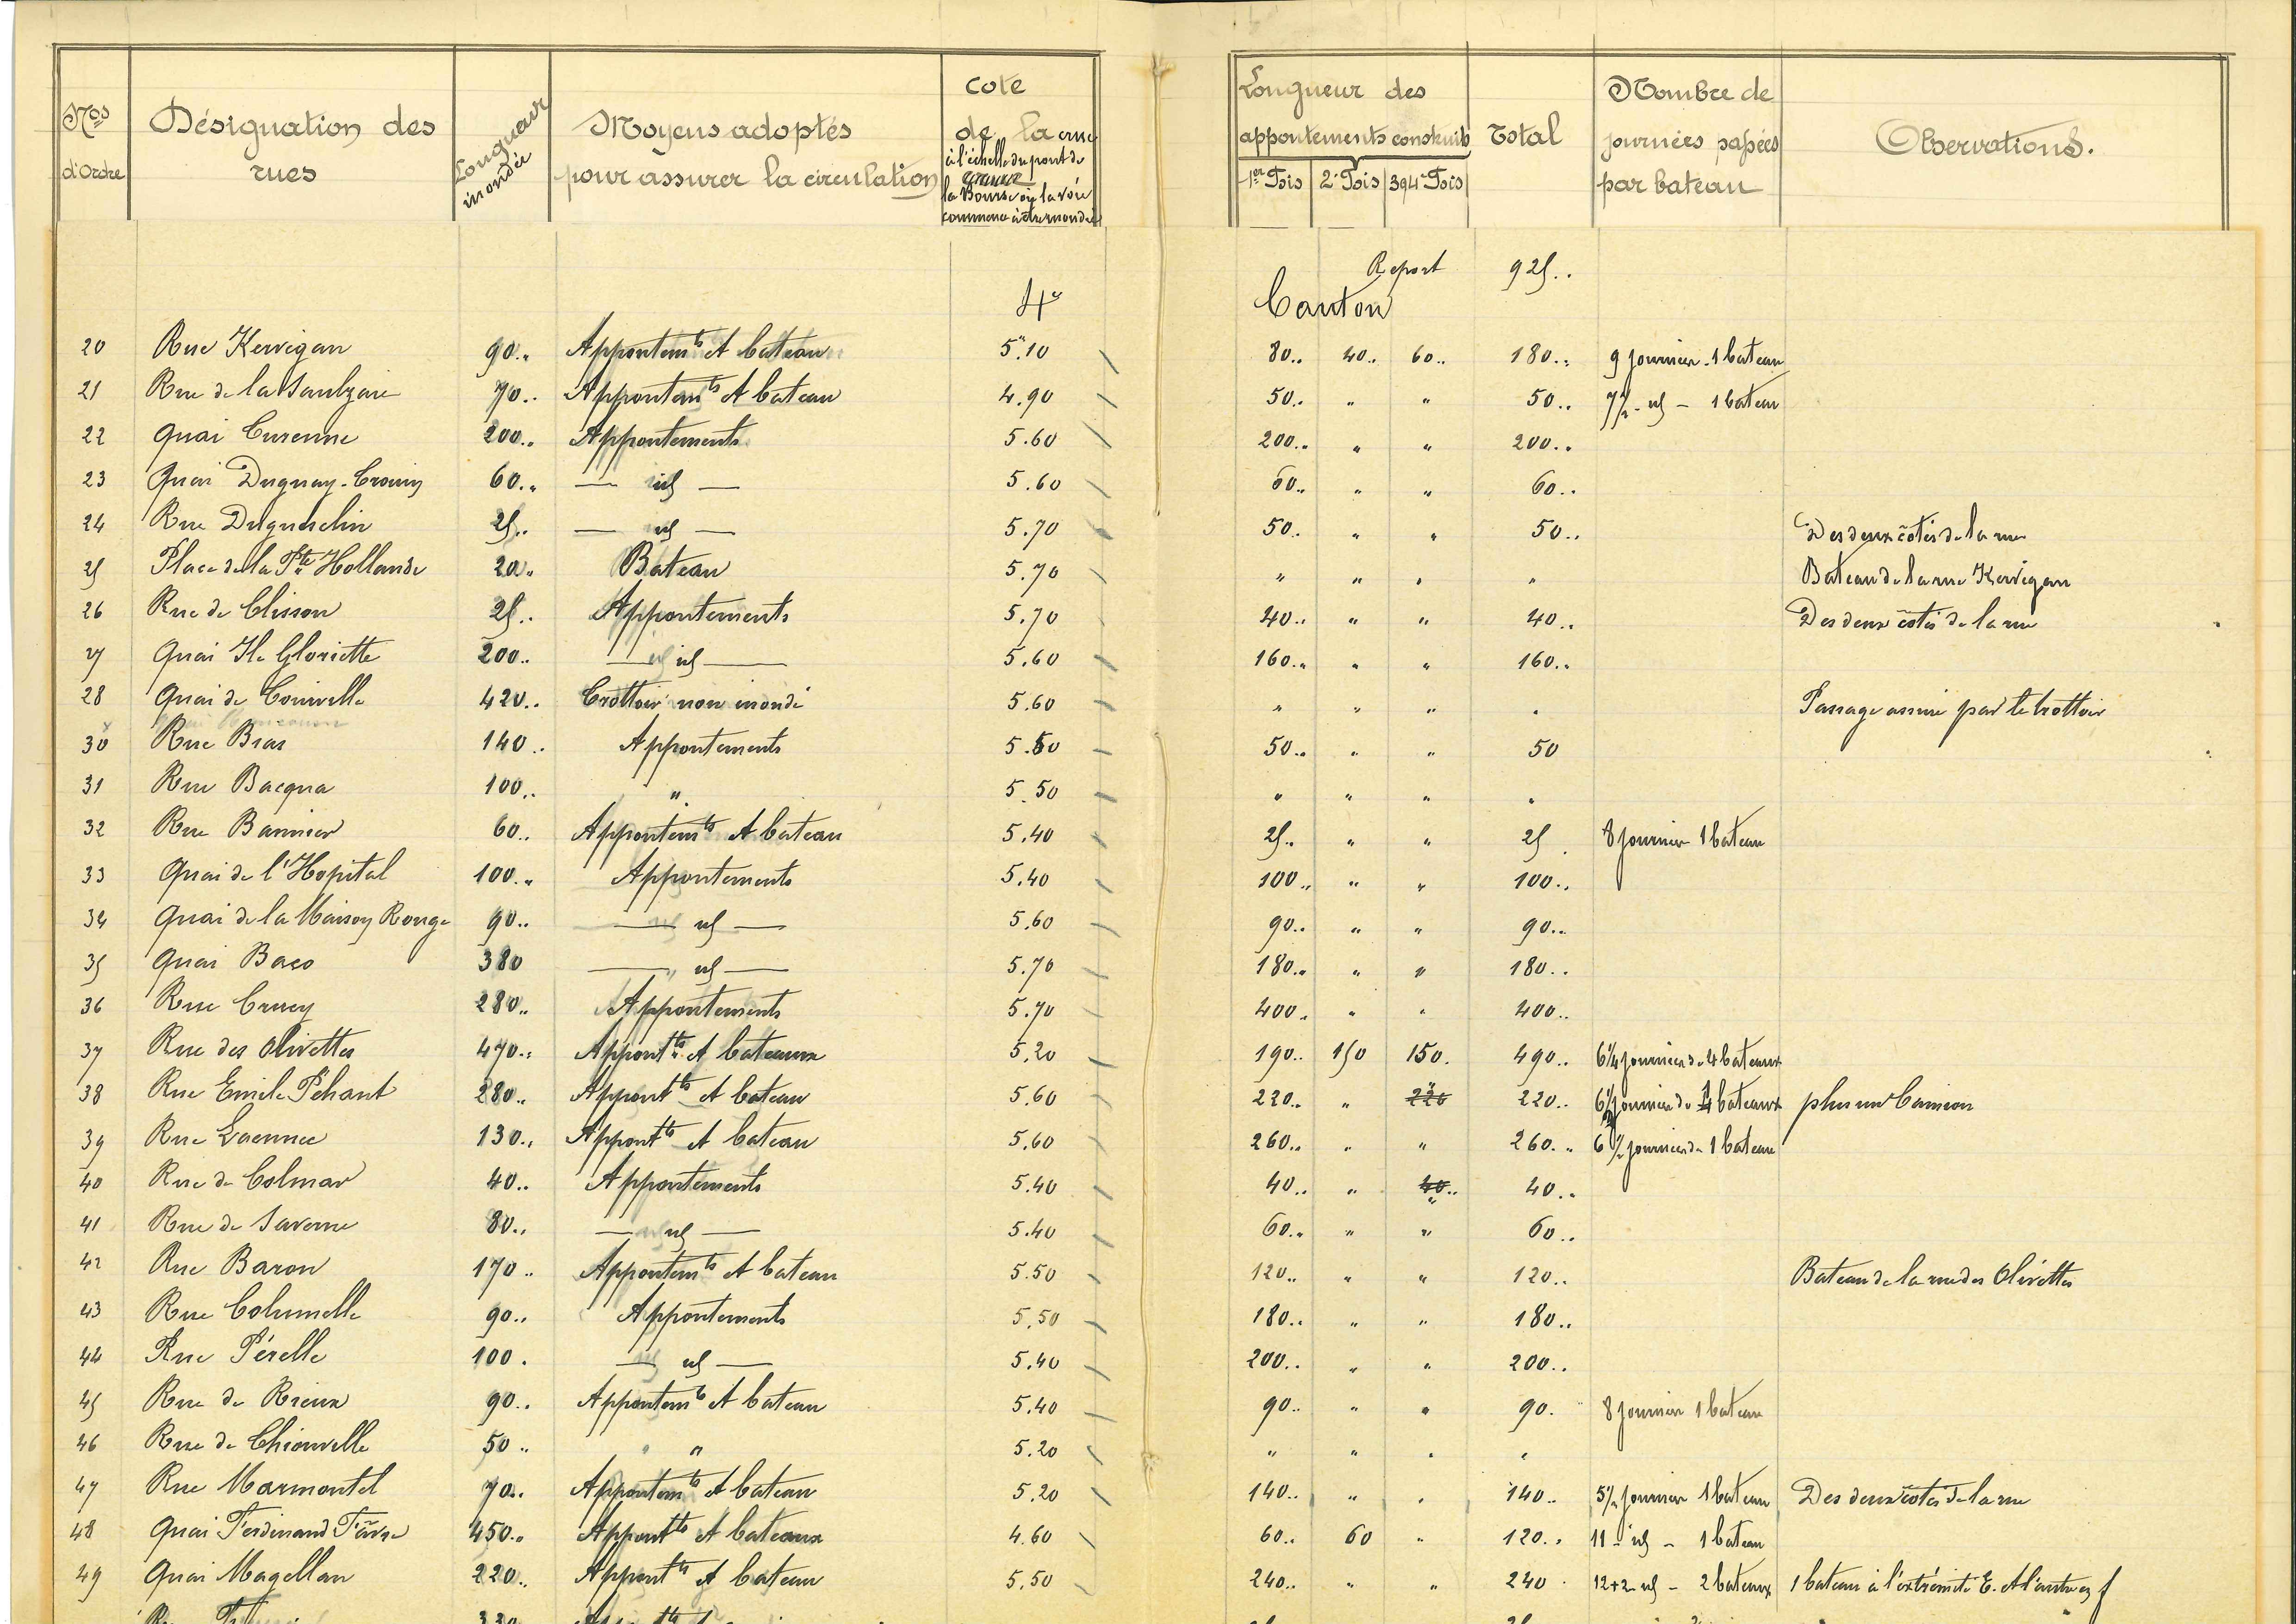 Nos d'Ordre | Désignation des rues | Longueur inondée | Moyens adoptés pour assurer la circulation | cote de la crue à l'échelle du pont de la Bourse où la voie commence à être inondée | Longueur des appontements construits 1er Fois | 2e Fois | 3 & 4e Fois | Total | Nombre de journées passées par bateau | Observations.
Report 925..
4e Canton
20 Rue Kervégan 90.. Appontemts et bateau 5m.10 80.. 40.. 60.. 180.. 9 journées - 1 bateau
21 Rue de la Saulzaie 70.. Appontemts et bateau 4.90 50.. " " 50.. 7 1/2 - id - 1 bateau
22 Quai Turenne 200.. Appontements 5.60 200.. " " 200..
23 Quai Duguay-Trouin 60.. — id — 5.60 60.. " " 60..
24 Rue Duguesclin 25.. — id — 5.70 50.. " " 50.. Des deux côtés de la rue
25 Place de la Pte Hollande 20.. Bateau 5.70 " " " " Bateau de la rue Kervégan
26 Rue de Clisson 25.. Appontements 5.70 40.. " " 40.. Des deux côtés de la rue
27 Quai Ile Gloriette 200.. — id — 5.60 160.. " " 160..
28 Quai de Tourville 420.. Trottoir non inondé 5.60 " " " " Passage assuré par le trottoir
30 Rue Bias 140.. Appontements 5.50 50.. " " 50
31 Rue Bacqua 100.. " 5.50 " " " "
32 Rue Bannier 60.. Appontemts et bateau 5.40 25.. " " 25 8 journées 1 bateau
33 Quai de l'Hopital 100.. Appontements 5.40 100.. " " 100..
34 Quai de la Maison Rouge 90.. — id — 5.60 90.. " " 90..
35 Quai Baco 380 — id — 5.70 180.. " " 180..
36 Rue Crucy 280.. Appontements 5.70 400. " " 400..
37 Rue des Olivettes 470.. Appontts et bateaux 5.20 190.. 150 150. 490.. 6 1/4 journées de 4 bateaux
38 Rue Emile Péhant 280.. Appontts et bateau 5.60 220.. " 220 " 220.. 6 1/2 journées de 1 bateaux plus un Camion
39 Rue Laennec 130.. Appontts et bateau 5.60 260.. " " 260.. 6 1/2 journées de 1 bateau
40 Rue de Colmar 40.. Appontements 5.40 40.. " 40.. " 40..
41 Rue de Saverne 80.. — id — 5.40 60.. " " 60..
42 Rue Baron 170.. Appontemts et bateau 5.50 120.. " " 120.. Bateau de la rue des Olivettes
43 Rue Columelle 90.. Appontements 5.50 180.. " " 180..
44 Rue Pérelle 100. — id — 5.40 200.. " " 200..
45 Rue de Rieux 90.. Appontemts et bateau 5.40 90.. " " 90. 8 journées 1 bateau
46 Rue de Thionville 50.. " " 5.20 " " " "
47 Rue Marmontel 70.. Appontemts et bateau 5.20 140.. " " 140.. 5 1/2 journées 1 bateau Des deux côtés de la rue
48 Quai Ferdinand Favre 450.. Appontts et bateaux 4.60 60.. 60 " 120.. 11 - id - 1 bateau
49 Quai Magellan 220.. Appontts et bateau 5.50 240.. " " 240 12+2 - id - 2 bateaux 1 bateau à l'extrémité E. et l'autre